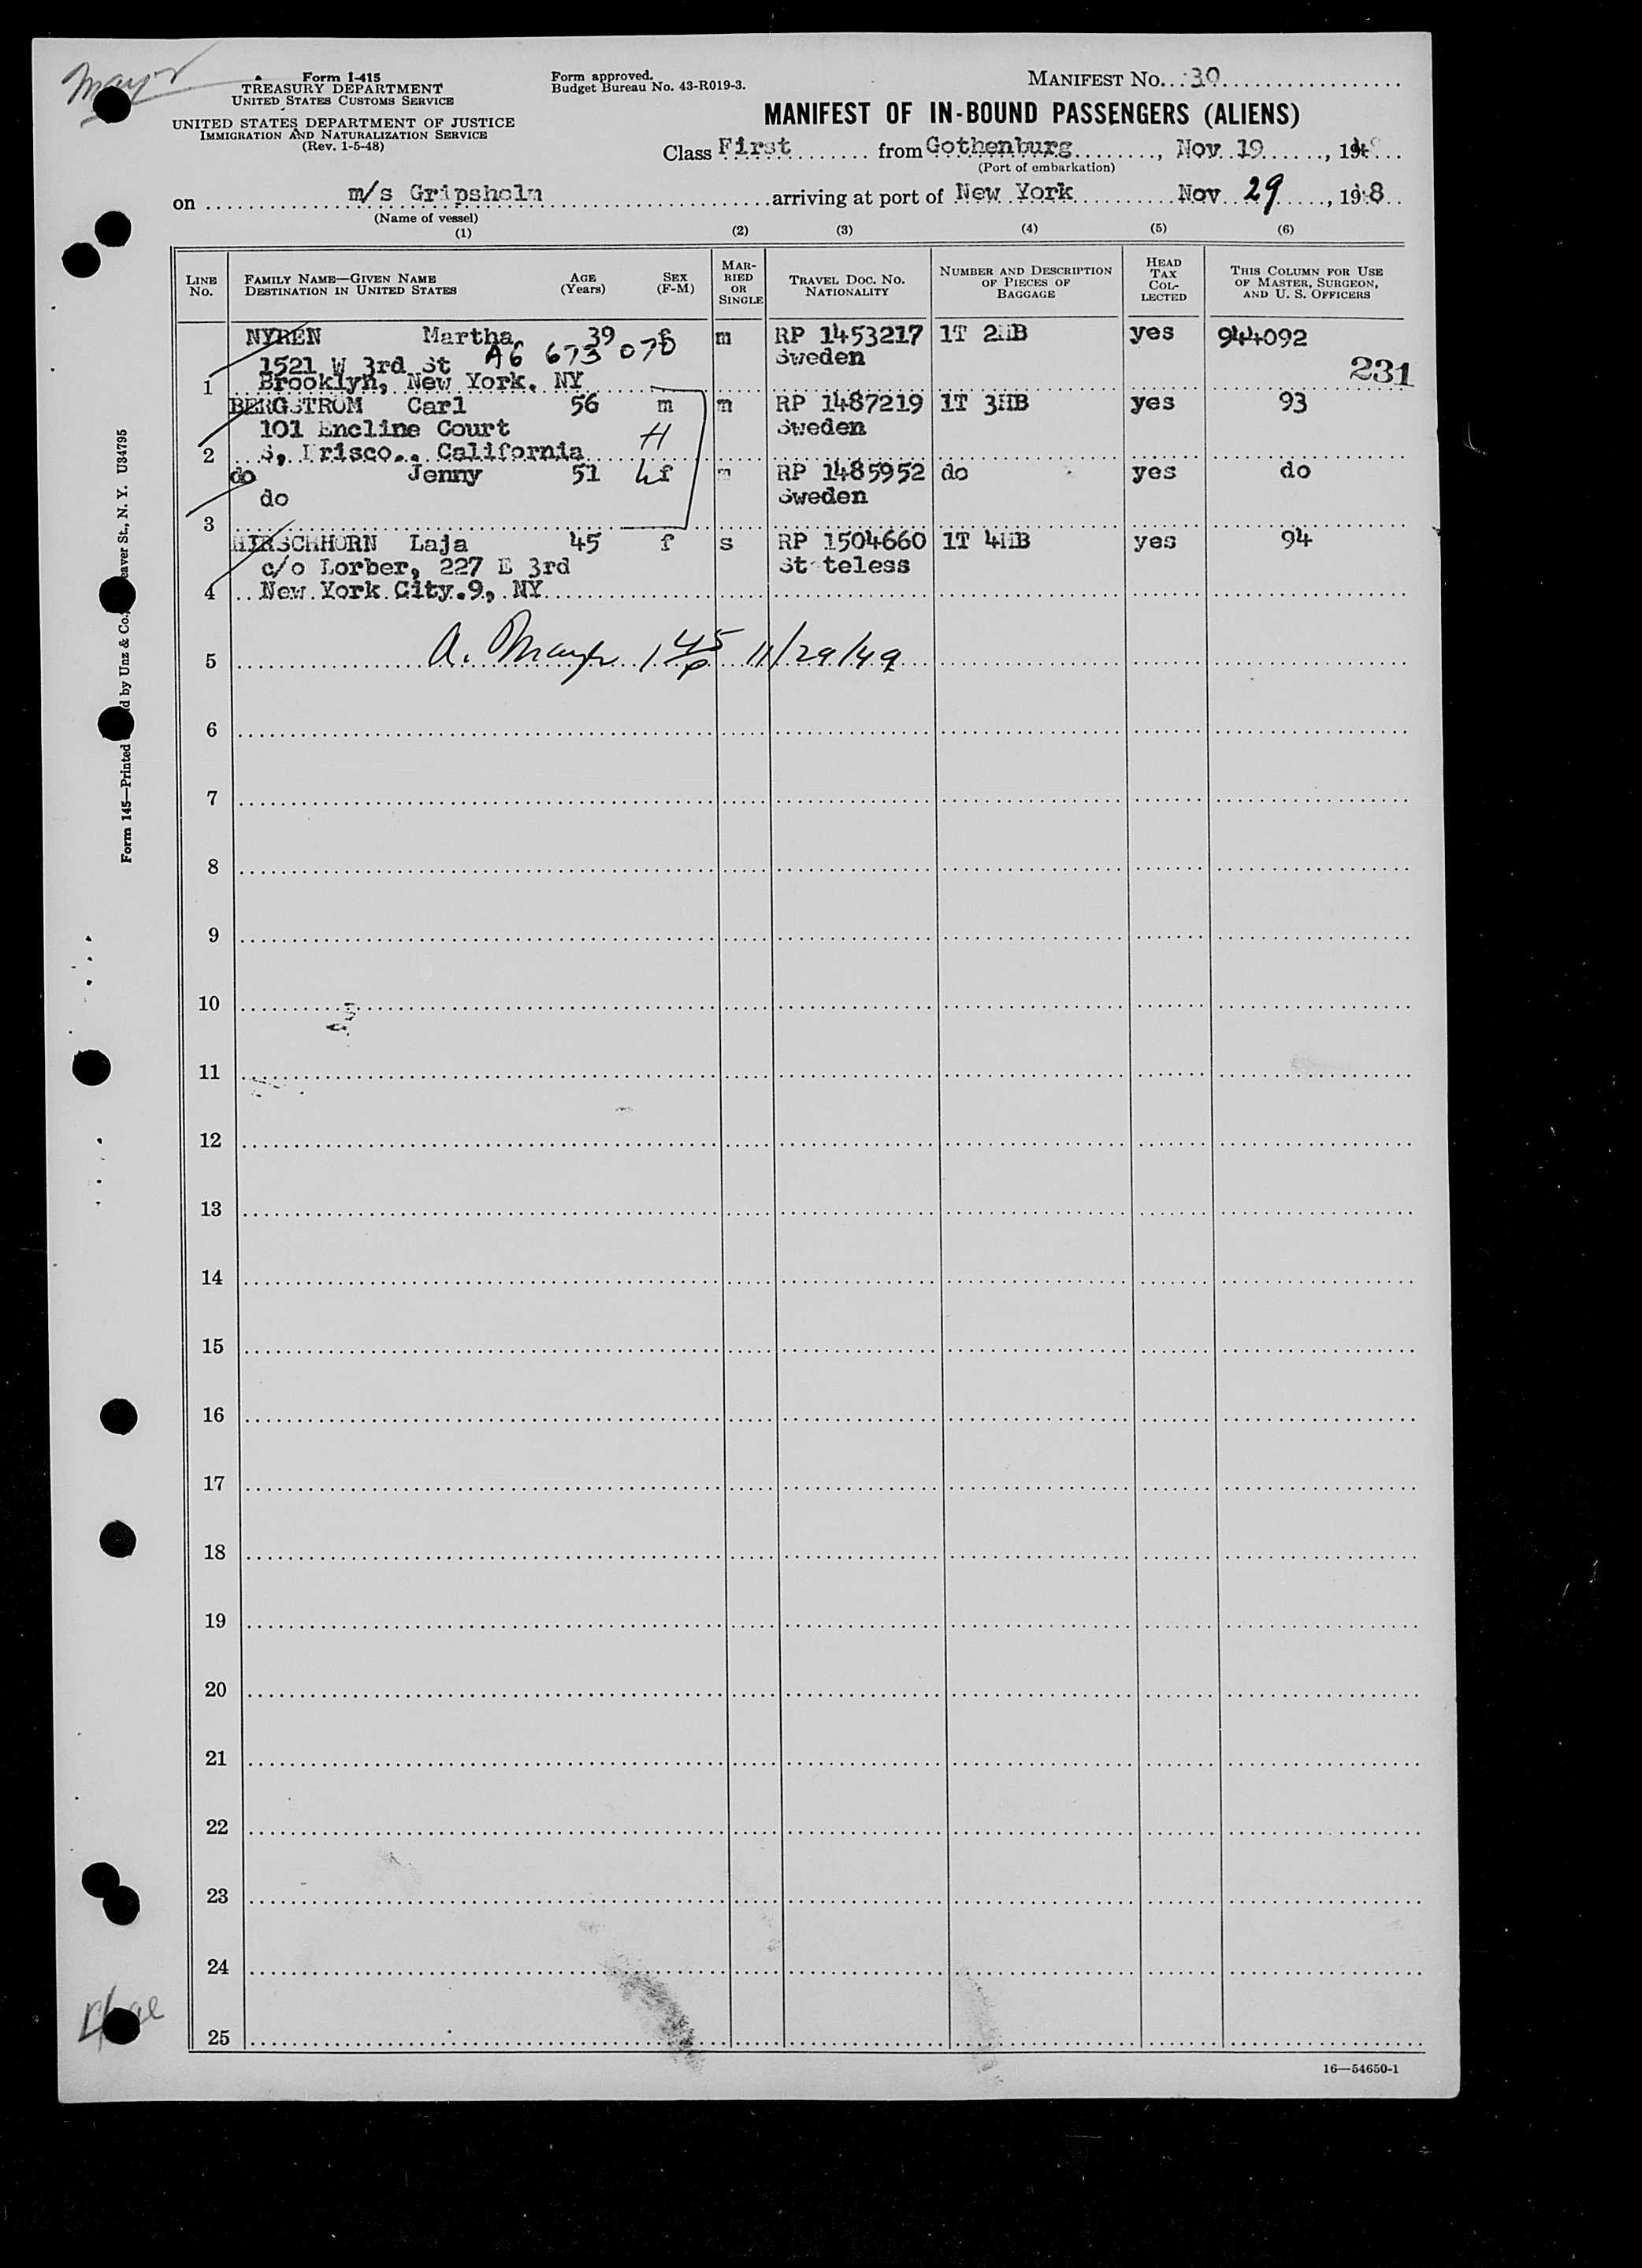 Mayr
Form I-415
TREASURY DEPARTMENT
UNITED STATES CUSTOMS SERVICE
UNITED STATES DEPARTMENT OF JUSTICE
IMMIGRATION AND NATURALIZATION SERVICE
(Rev. 1-5-48)
Form approved.
Budget Bureau No. 43-R019-3.
MANIFEST NO. 30
MANIFEST OF IN-BOUND PASSENGERS (ALIENS)
Class First from Gothenburg, Nov 19, 1948
(Port of embarkation)
on m/s Gripsholm arriving at port of New York Nov 29, 1948
(Name of vessel)
(1) (2) (3) (4) (5) (6)
LINE NO. FAMILY NAME—GIVEN NAME DESTINATION IN UNITED STATES AGE (Years) SEX (F-M) MARRIED OR SINGLE TRAVEL DOC. NO. NATIONALITY NUMBER AND DESCRIPTION OF PIECES OF BAGGAGE HEAD TAX COLLECTED THIS COLUMN FOR USE OF MASTER, SURGEON, AND U. S. OFFICERS
NYREN Martha 39 f m RP 1453217 1T 2HB yes 944092
1521 W 3rd St A6 673 070 Sweden
231
1 Brooklyn, New York. NY
BERGSTROM Carl 56 m m RP 1487219 1T 3HB yes 93
101 Encline Court H Sweden
2 S, Frisco., California
do Jenny 51 W f m RP 1485952 do yes do
do Sweden
3
HIRSCHHORN Laja 45 f s RP 1504660 1T 4HB yes 94
c/o Lorber, 227 E 3rd Stateless
4 New York City.9, NY
5 A. Mayr 1 45 p 11/29/49
6
7
8
9
10
11
12
13
14
15
16
17
18
19
20
21
22
23
24
25
16—54650-1
Form 145—Printed d by Unz & Co., eaver St., N. Y. U34795